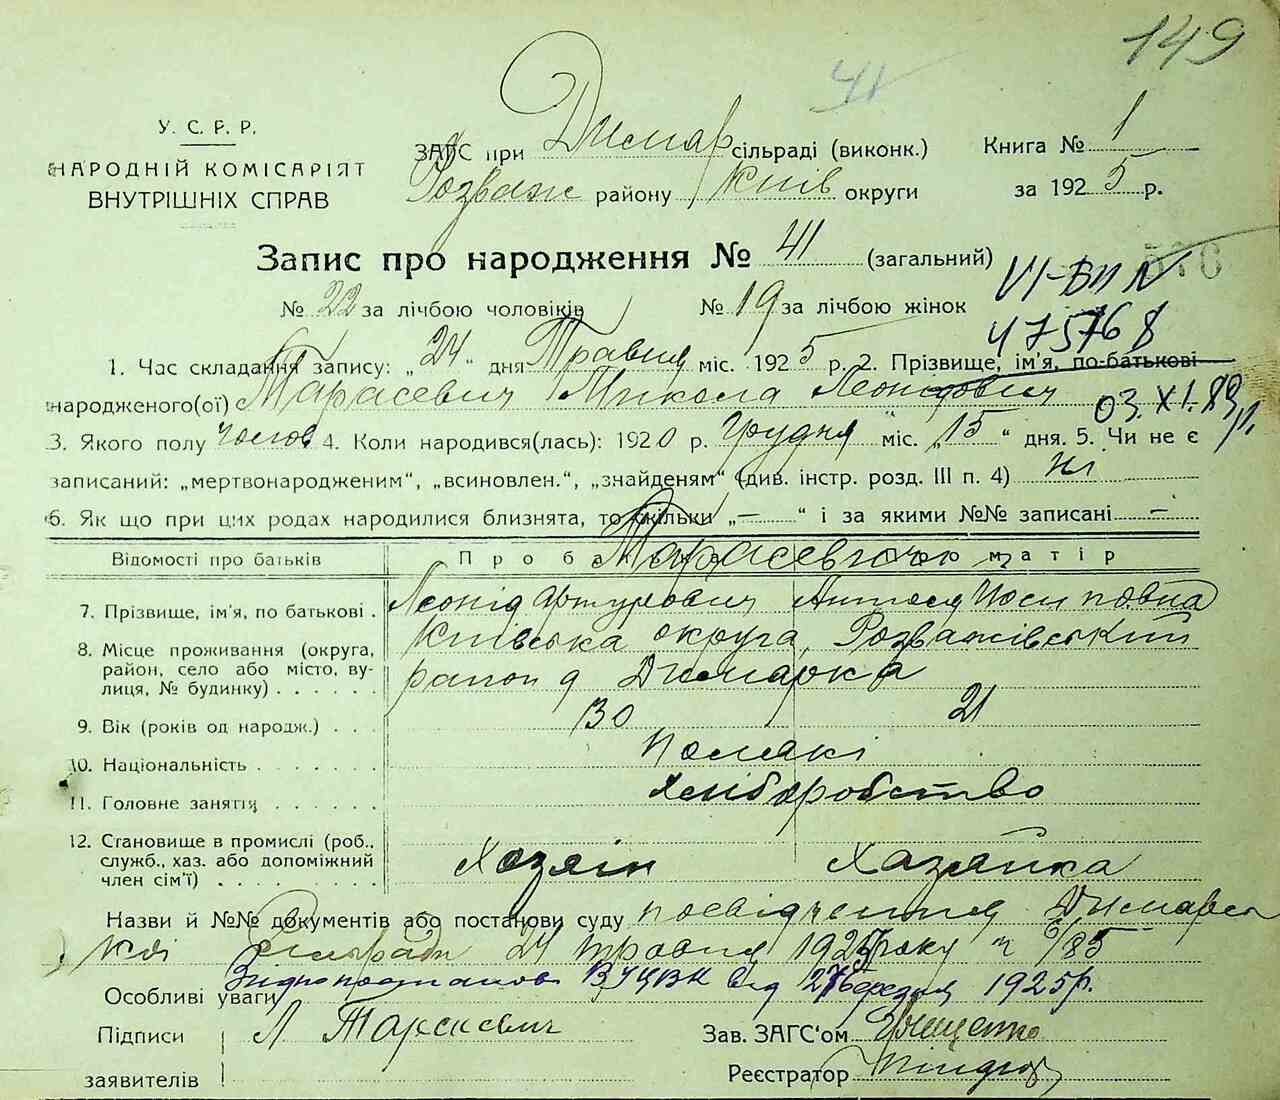 149
41
У. С. Р. Р.
НАРОДНІЙ КОМІСАРІЯТ
ВНУТРІШНІХ СПРАВ
ЗАГС при Димар сільраді (виконк.)
Розваж району Київ округи
Книга № 1
за 1925 р.
Запис про народження № 41 (загальний)
576
№ 22 за лічбою чоловіків № 19 за лічбою жінок
VI-БП №
475768
03.XI.89р.
1. Час складання запису: „24" дня Травня міс. 1925 р. 2. Прізвище, ім'я, по-батькові
народженого(ої) Тарасевич Микола Леонідович
3. Якого полу чолов 4. Коли народився(лась): 1920 р. Грудня міс. „15" дня. 5. Чи не є
записаний: „мертвонародженим", „всиновлен.", „знайденям" (див. інстр. розд. III п. 4) Ні
6. Як що при цих родах народилися близнята, то скільки „—" і за якими №№ записані —
Відомості про батьків Про батька Про матір
Тарасевичи
7. Прізвище, ім'я, по батькові . Леонід Артурович Антося Йосиповна
8. Місце проживання (округа, район, село або місто, вулиця, № будинку) . . . . . . Київська округа, Розважівський
район д Димарка
9. Вік (років од народж.) . . . 30 21
10. Національність . . . . . . . Поляки
11. Головне заняття . . . . . . Хліборобство
12. Становище в промислі (роб., служб., хаз. або допоміжний член сім'ї) . . . . . . . . Хозяін Хазяйка
Назви й №№ документів або постанови суду посвідчення Димарсь
кої сільради 24 травня 1925 року ч 6/85
Особливі уваги Згідно постанов ВУЦВК від 27 березня 1925 р.
Підписи Л Тарасевич Зав. ЗАГС'ом
заявителів Реєстратор